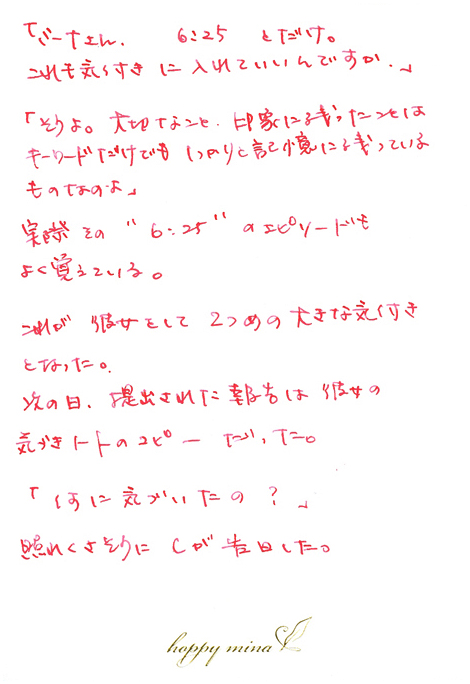 「ごーさん、 6:25 とだけ。
これも気付きに入れていいんですか。」
「そうよ。大切なこと、印象に残ったことは
キーワードだけでも しっかりと記憶に残っている
ものなのよ」
実際その "6:25" のエピソードも
よく覚えている。
これが 彼女をして 2つめの大きな気付き
となった。
次の日、提出された報告は 彼女の
気づきノートのコピー だった。
「何に気づいたの?」
照れくさそうに Cが告白した。
happy mina